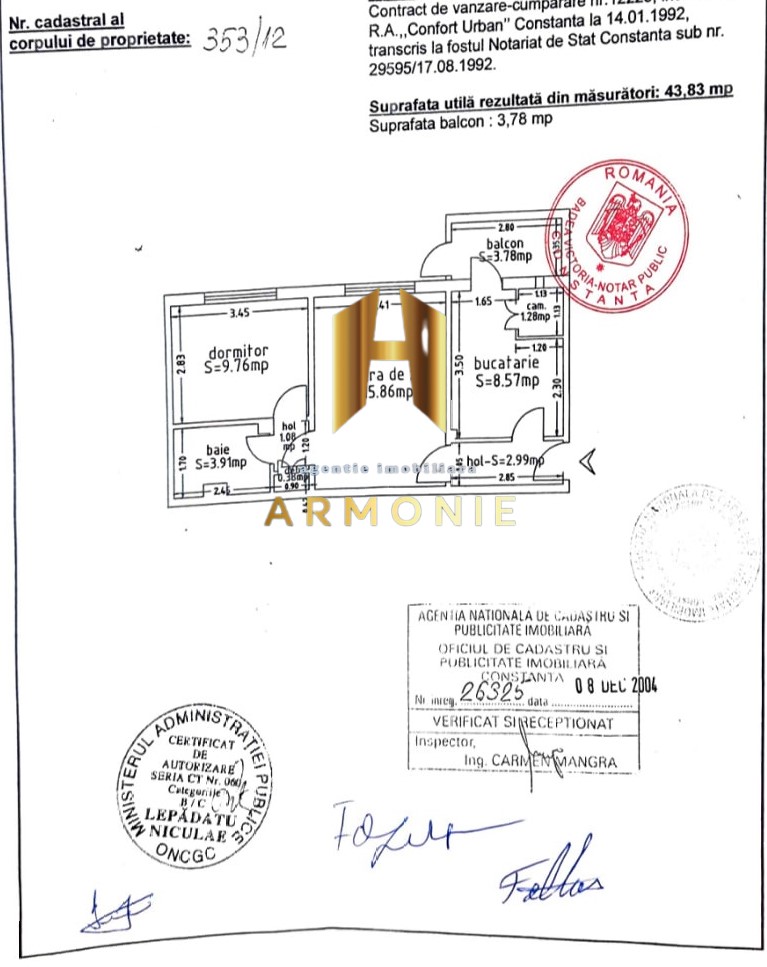 Nr. cadastral al
corpului de proprietate: 353/12
Contract de vanzare-cumparare nr.
R.A.,,Confort Urban" Constanta la 14.01.1992,
transcris la fostul Notariat de Stat Constanta sub nr.
29595/17.08.1992.
Suprafata utilă rezultată din măsurători: 43,83 mp
Suprafata balcon : 3,78 mp
ROMANIA
BADEA VICTORIA-NOTAR PUBLIC
CONSTANTA
2.80
balcon
S=3.78mp
3.45
2.83
dormitor
S=9.76mp
41
ra de
5.86mp
1.65
1.13
cam.
1.28mp
1.13
1.20
3.50
bucatarie
S=8.57mp
2.30
hol
1.08
mp
1.20
baie
S=3.91mp
1.70
2.45
0.38mp
0.90
hol-S=2.99mp
2.85
agentie imobiliara
ARMONIE
AGENTIA NATIONALA DE CADASTRU SI
PUBLICITATE IMOBILIARA
OFICIUL DE CADASTRU SI
PUBLICITATE IMOBILIARA
CONSTANTA
Nr. inreg. 26325 data 08 DEC 2004
VERIFICAT SI RECEPTIONAT
Inspector,
Ing. CARMEN MANGRA
MINISTERUL ADMINISTRATIEI PUBLICE
CERTIFICAT
DE
AUTORIZARE
SERIA CT Nr.
Categoriile
B/C
LEPĂDATU
NICULAE
ONCGC